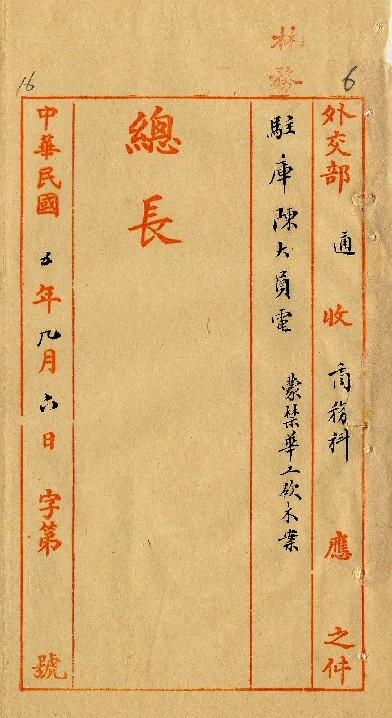 林務
6
外交部 通 收 商務科 應 之件
駐庫陳大員電 蒙禁華工砍木案
總長
中華民國 五年九月六日 字第 號
16